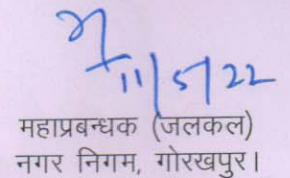 11/5/22
महाप्रबन्धक (जलकल)
नगर निगम, गोरखपुर।